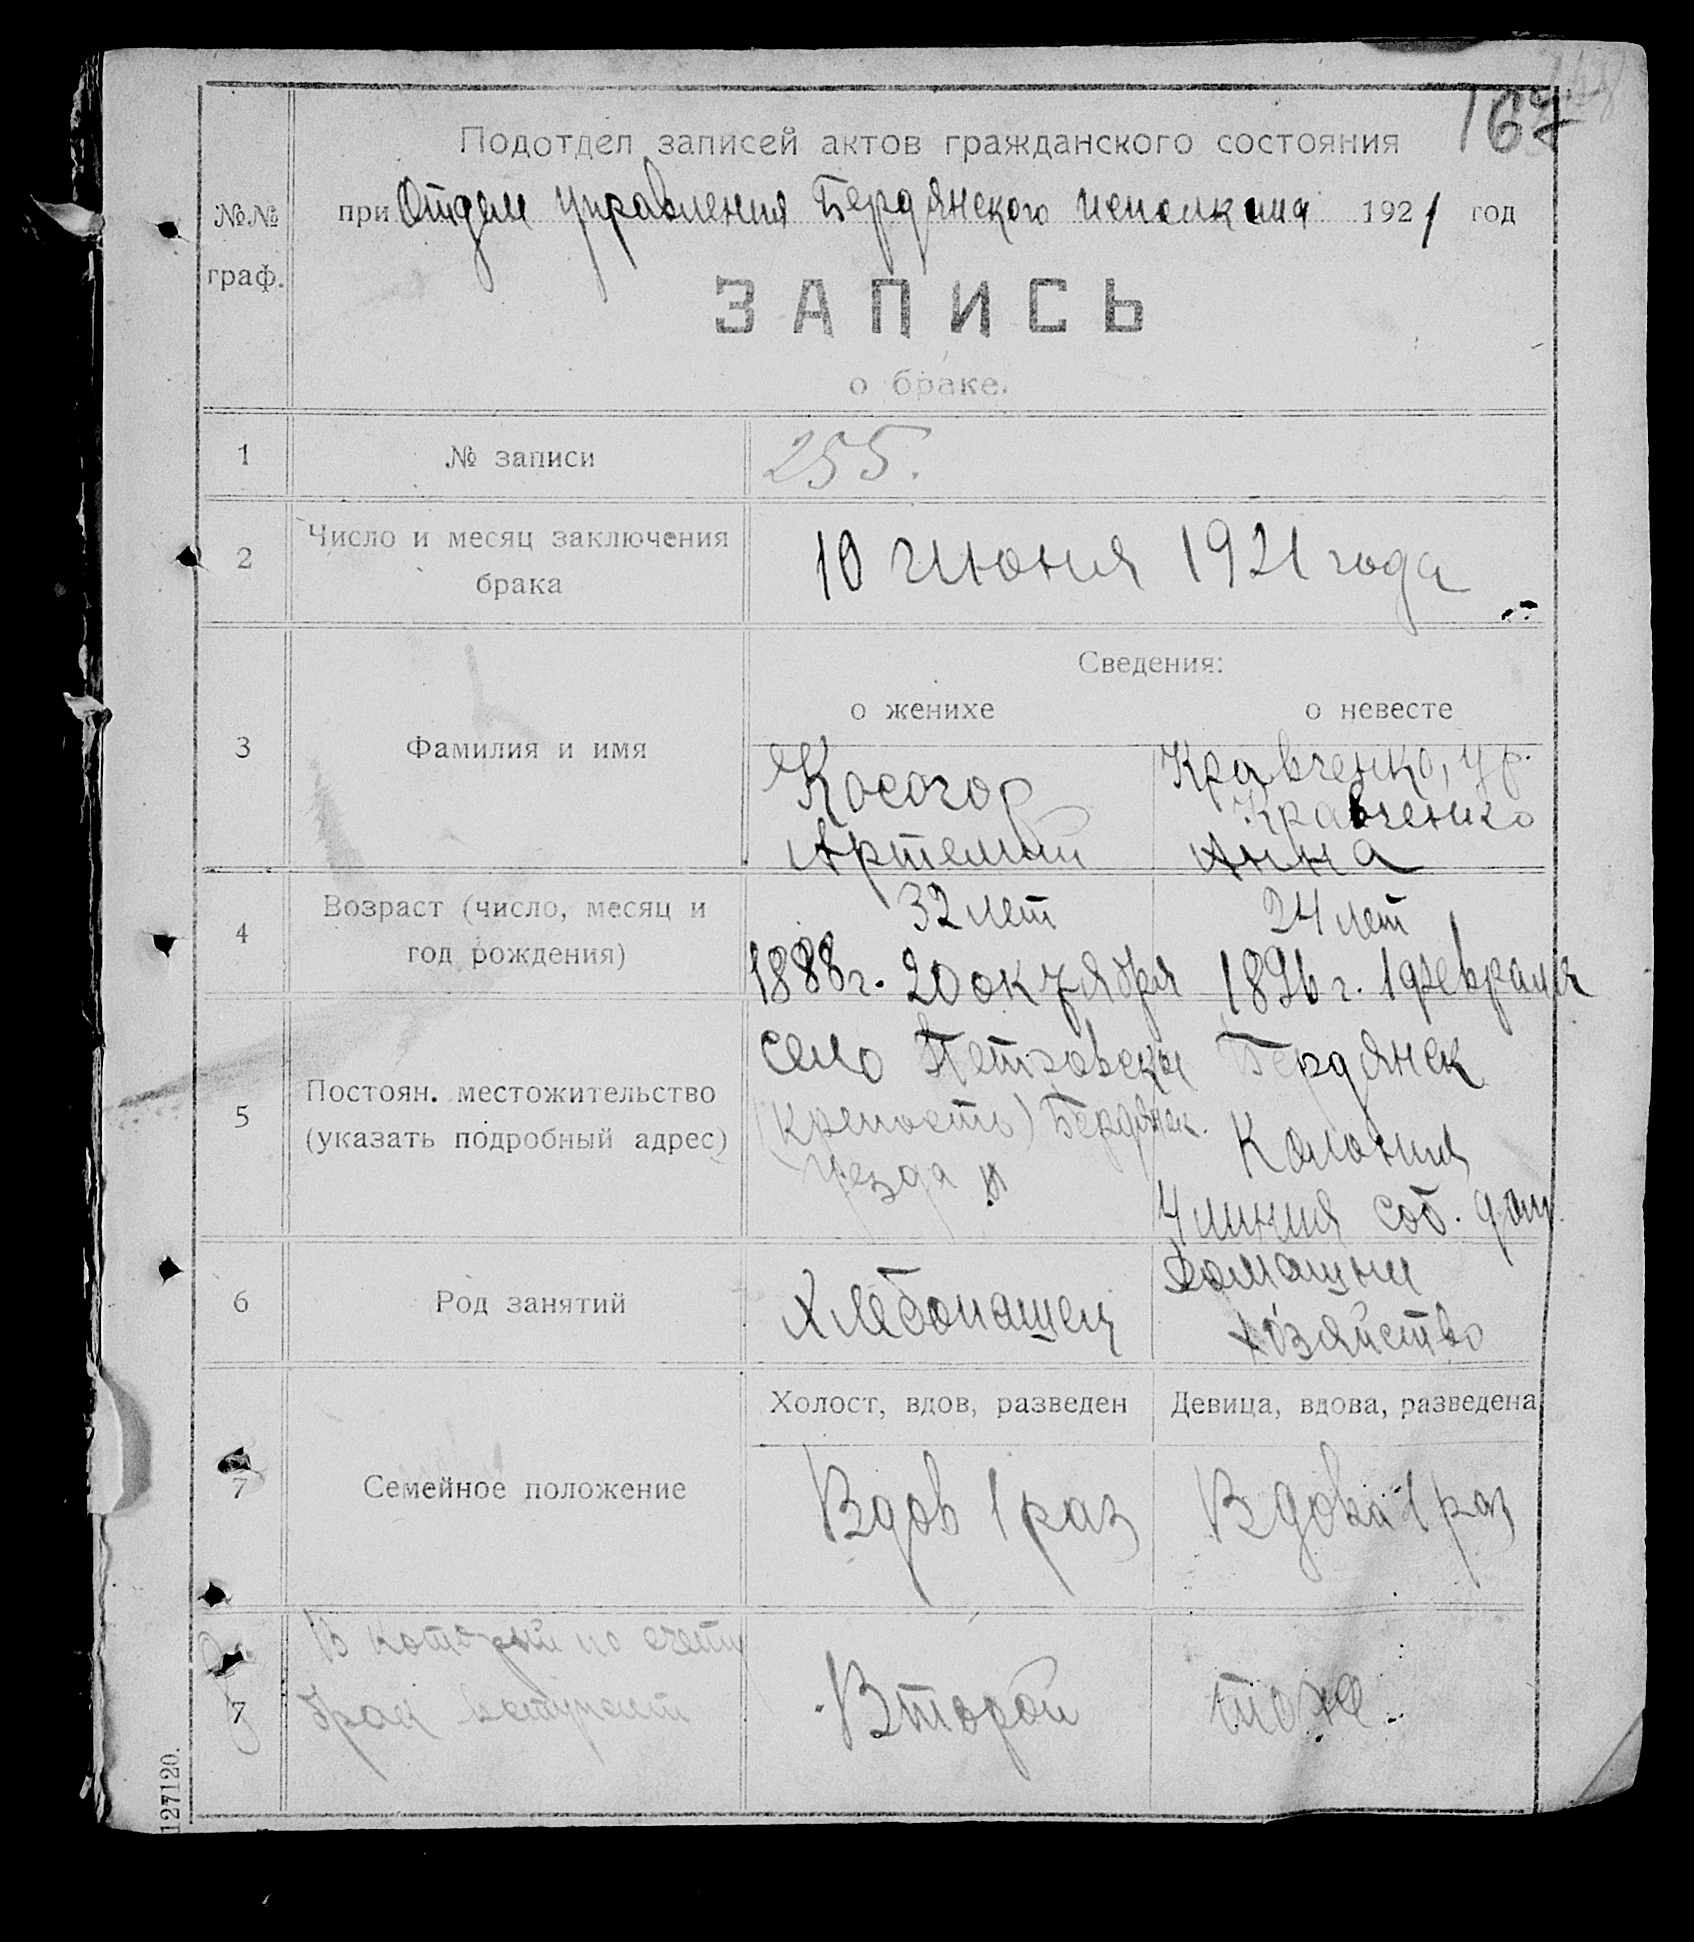 167
Подотдел записей актов гражданского состояния
при Отделе Управления Бердянского исполкома 1921 год
№№
граф.
ЗАПИСЬ
о браке.
1
№ записи
255.
2
Число и месяц заключения
брака
10 июня 1921 года
Сведения:
о женихе
о невесте
3
Фамилия и имя
Косогор
Артемий
Кравченко, ур.
Кравченко
Анна
4
Возраст (число, месяц и
год рождения)
32 лет
1888 г. 20 октября
24 лет
1896 г. 1 февраля
5
Постоян. местожительство
(указать подробный адрес)
село Петровское
(крепость) Бердянск.
уезда
Бердянск
Колония
4 линия соб. дом.
6
Род занятий
Хлебопашец
Домашни
хозяйство
Холост, вдов, разведен
Девица, вдова, разведена
7
Семейное положение
Вдов 1 раз
Вдова 1 раз
7
В который по счету
брак вступают
Второй
тоже
127120.